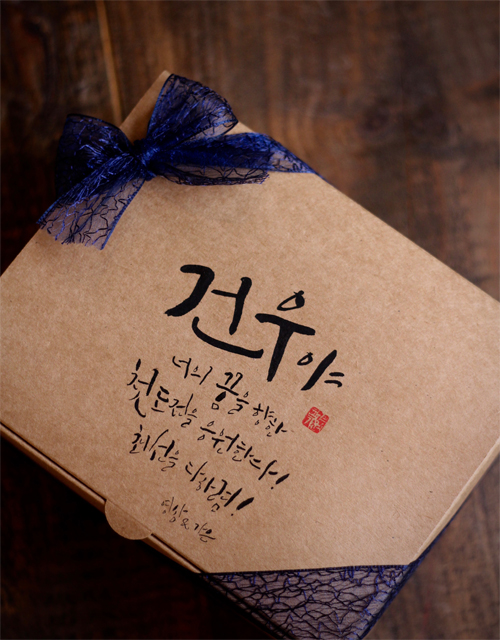 건우야
너의 꿈을 향한
첫 도전을 응원한다!
최선을 다하렴!